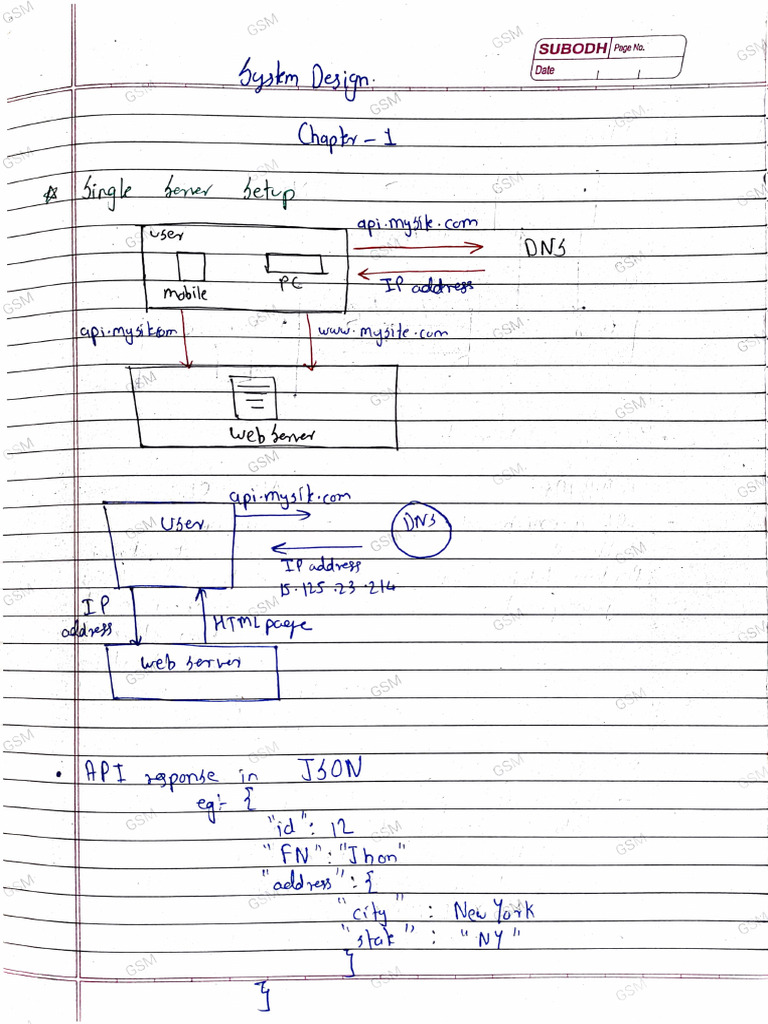 SUBODH Page No.
Date
System Design.
Chapter - 1
Single Server Setup
user
api.mysite.com
DNS
mobile
PC
IP address
api.mysite.com
www.mysite.com
Web Server
api.mysite.com
User
DNS
IP address
15.125.23.214
IP
address
HTML page
Web Server
• API response in JSON
eg:- {
"id": 12
"FN": "Jhon"
"address": {
"city" : New York
"state" : "NY"
}
}
GSM